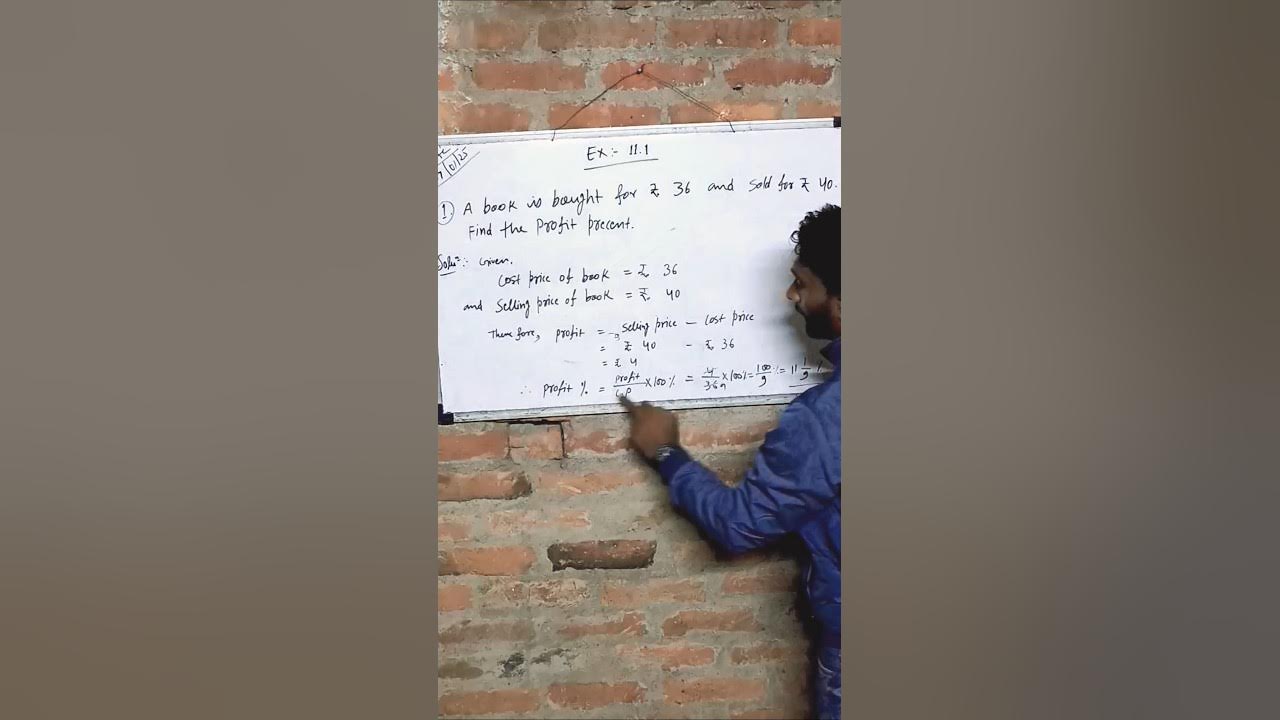 Ex:- 11.1
① A book is bought for ₹ 36 and sold for ₹ 40.
Find the Profit precent.
Soluⁿ:- Given.
Cost price of book = ₹ 36
and Selling price of book = ₹ 40
There fore, profit = selling price - cost price
= ₹ 40 - ₹ 36
= ₹ 4
∴ profit % = profit/C.P × 100% = 4/36 × 100% = 100/9 % = 11 1/9 %